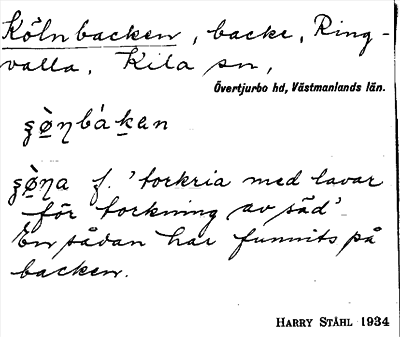 Kölnbacken, backe, Ring-
valla, Kila sn,
Övertjurbo hd, Västmanlands län.
ʂø̀ŋbákan
ʂø̀ŋa f. 'torkria med lavar
för torkning av säd'
En sådan har funnits på
backen.
HARRY STÅHL 1934